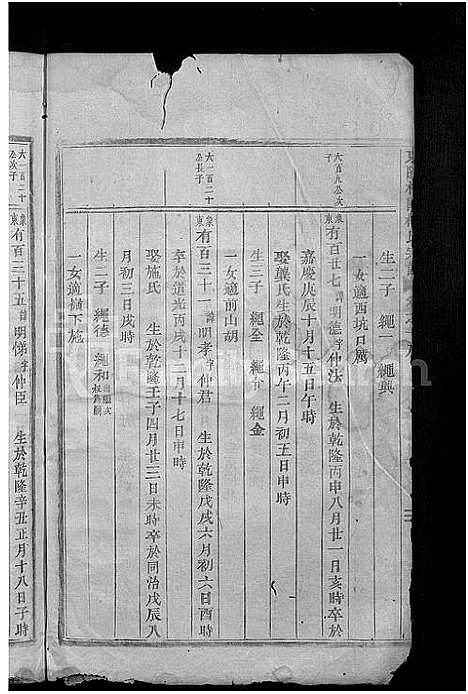 生二子 繩一 繩興
一女適西坑口厲
大百九公次子
象東有百廿七諱明德字仲法 生於乾隆丙申八月廿一日亥時卒於
嘉慶庚辰十月十五日午時
娶龔氏生於乾隆丙午二月初五日申時
生三子 繩全 繩介 繩金
一女適前山胡
大一百二十公長子
象東有百三十一諱明孝字仲君 生於乾隆戊戌六月初六日酉時
卒於道光丙戌十二月十七日申時
娶施氏 生於乾隆壬子四月廿三日未時卒於同治戊辰八
月初三日戌時
生二子 繩德 繩和出繼次叔為嗣
一女適樹下施
大一百二十公次子
象東有百三十五諱明悌字仲臣 生於乾隆辛丑正月十八日子時